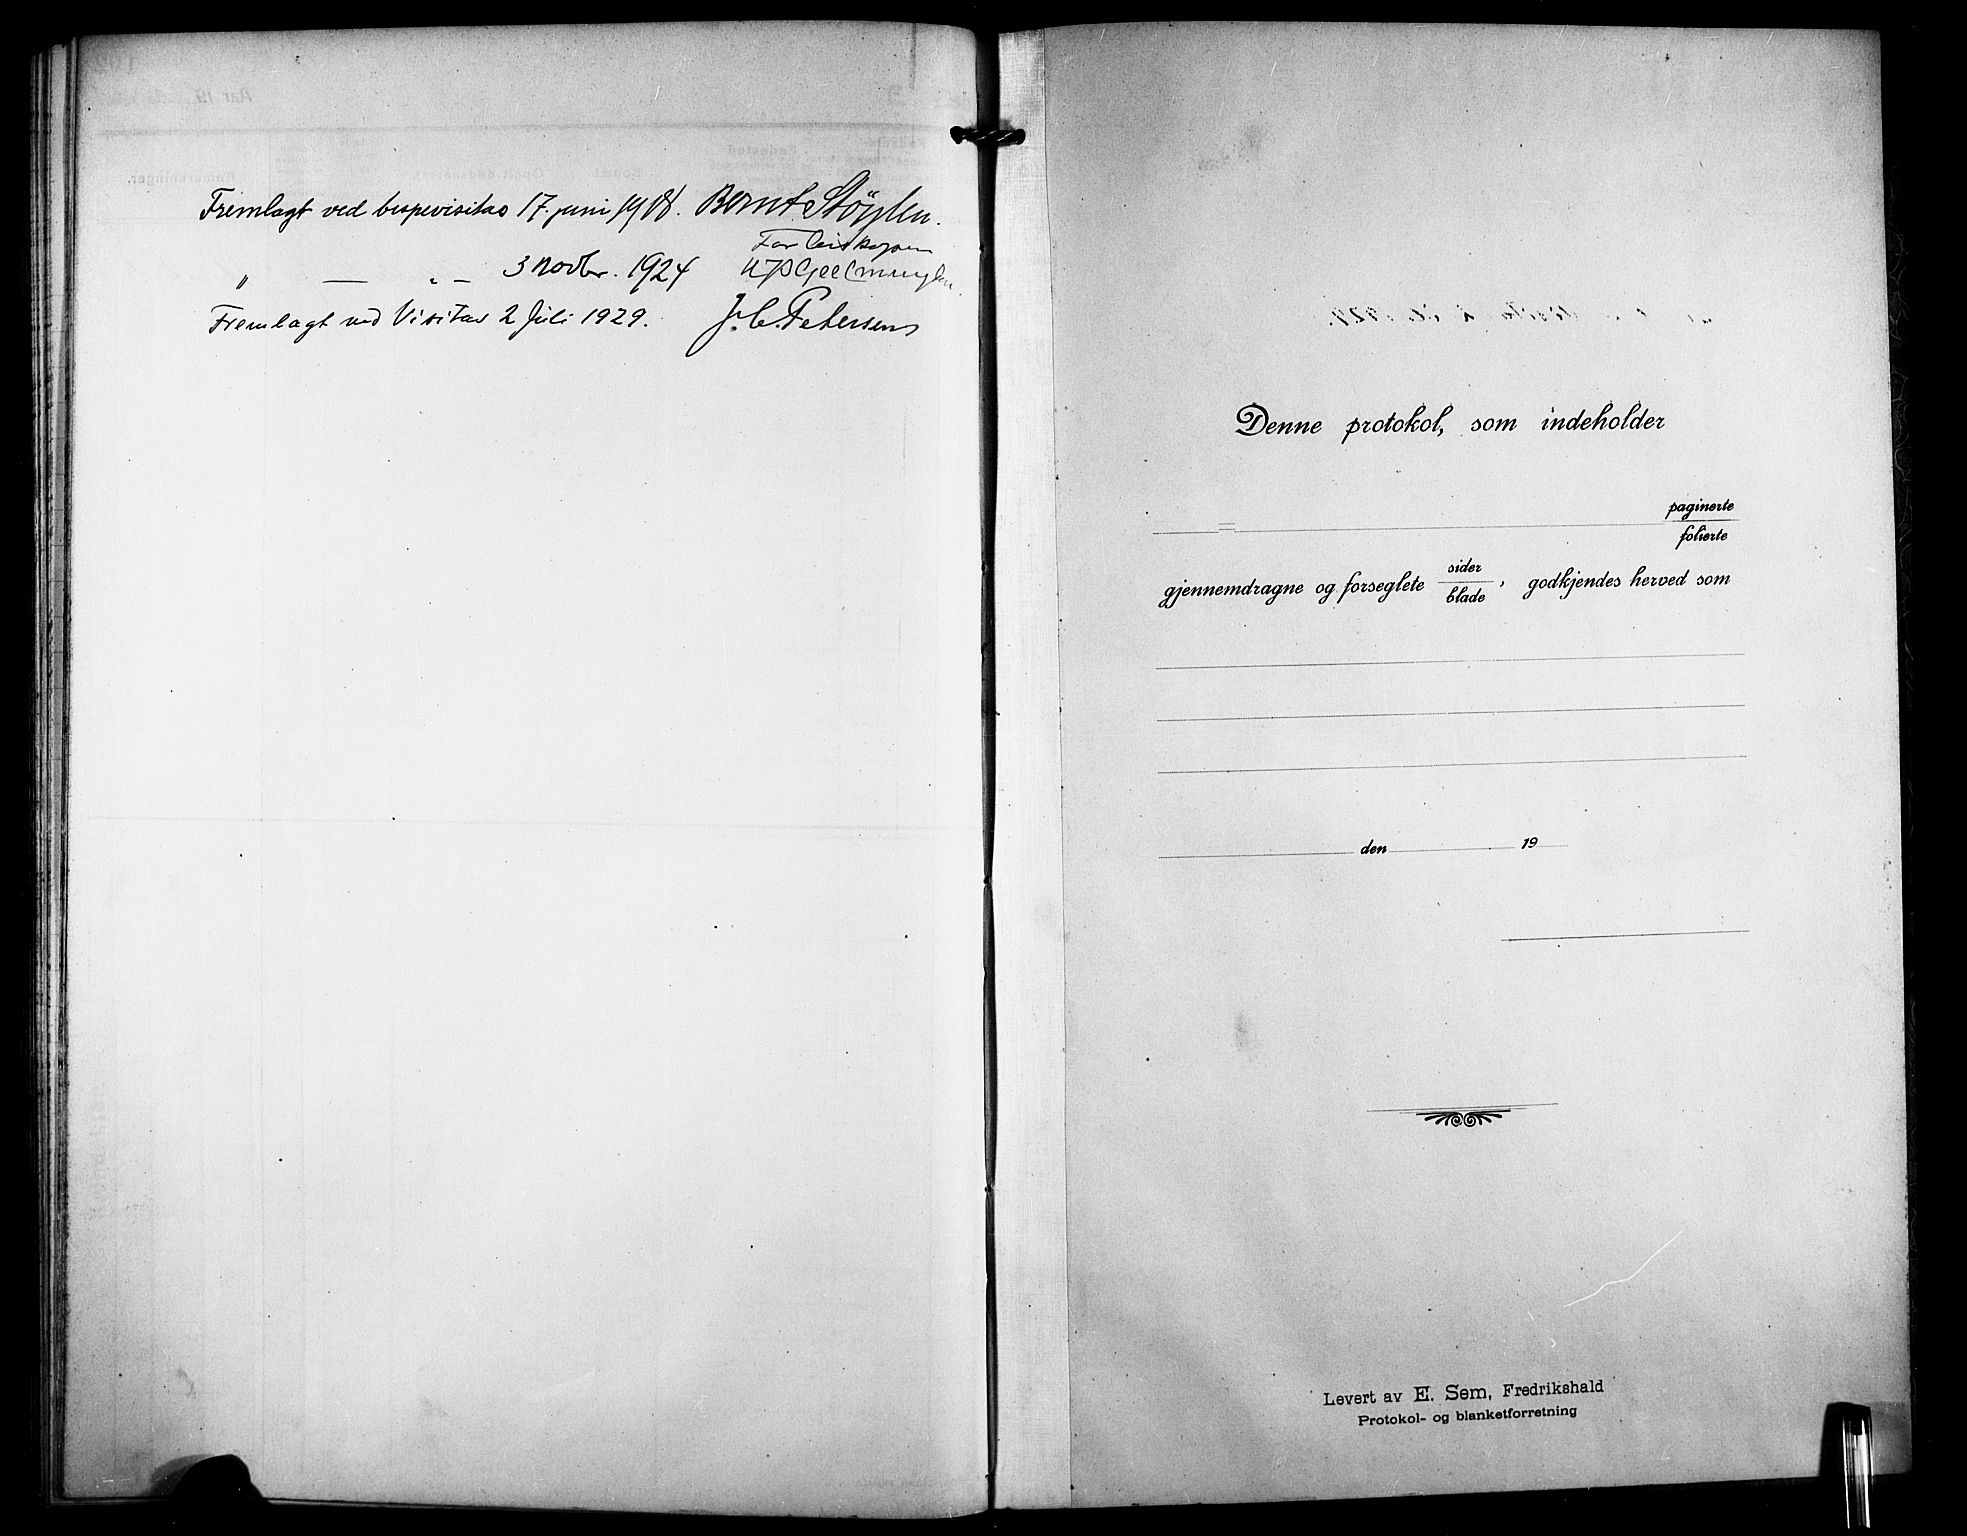 Fremlagt ved bispevisitas 17. juni 1918. Bernt Støylen.
For biskopen
" — " — 3 Novbr. 1924
Fremlagt ved Visitas 2 Juli 1929. J. C. Petersen
Denne protokol, som indeholder
paginerte
folierte
gjennemdragne og forseglete sider/blade, godkjendes herved som
den 19
Levert av E. Sem, Fredrikshald
Protokol- og blanketforretning